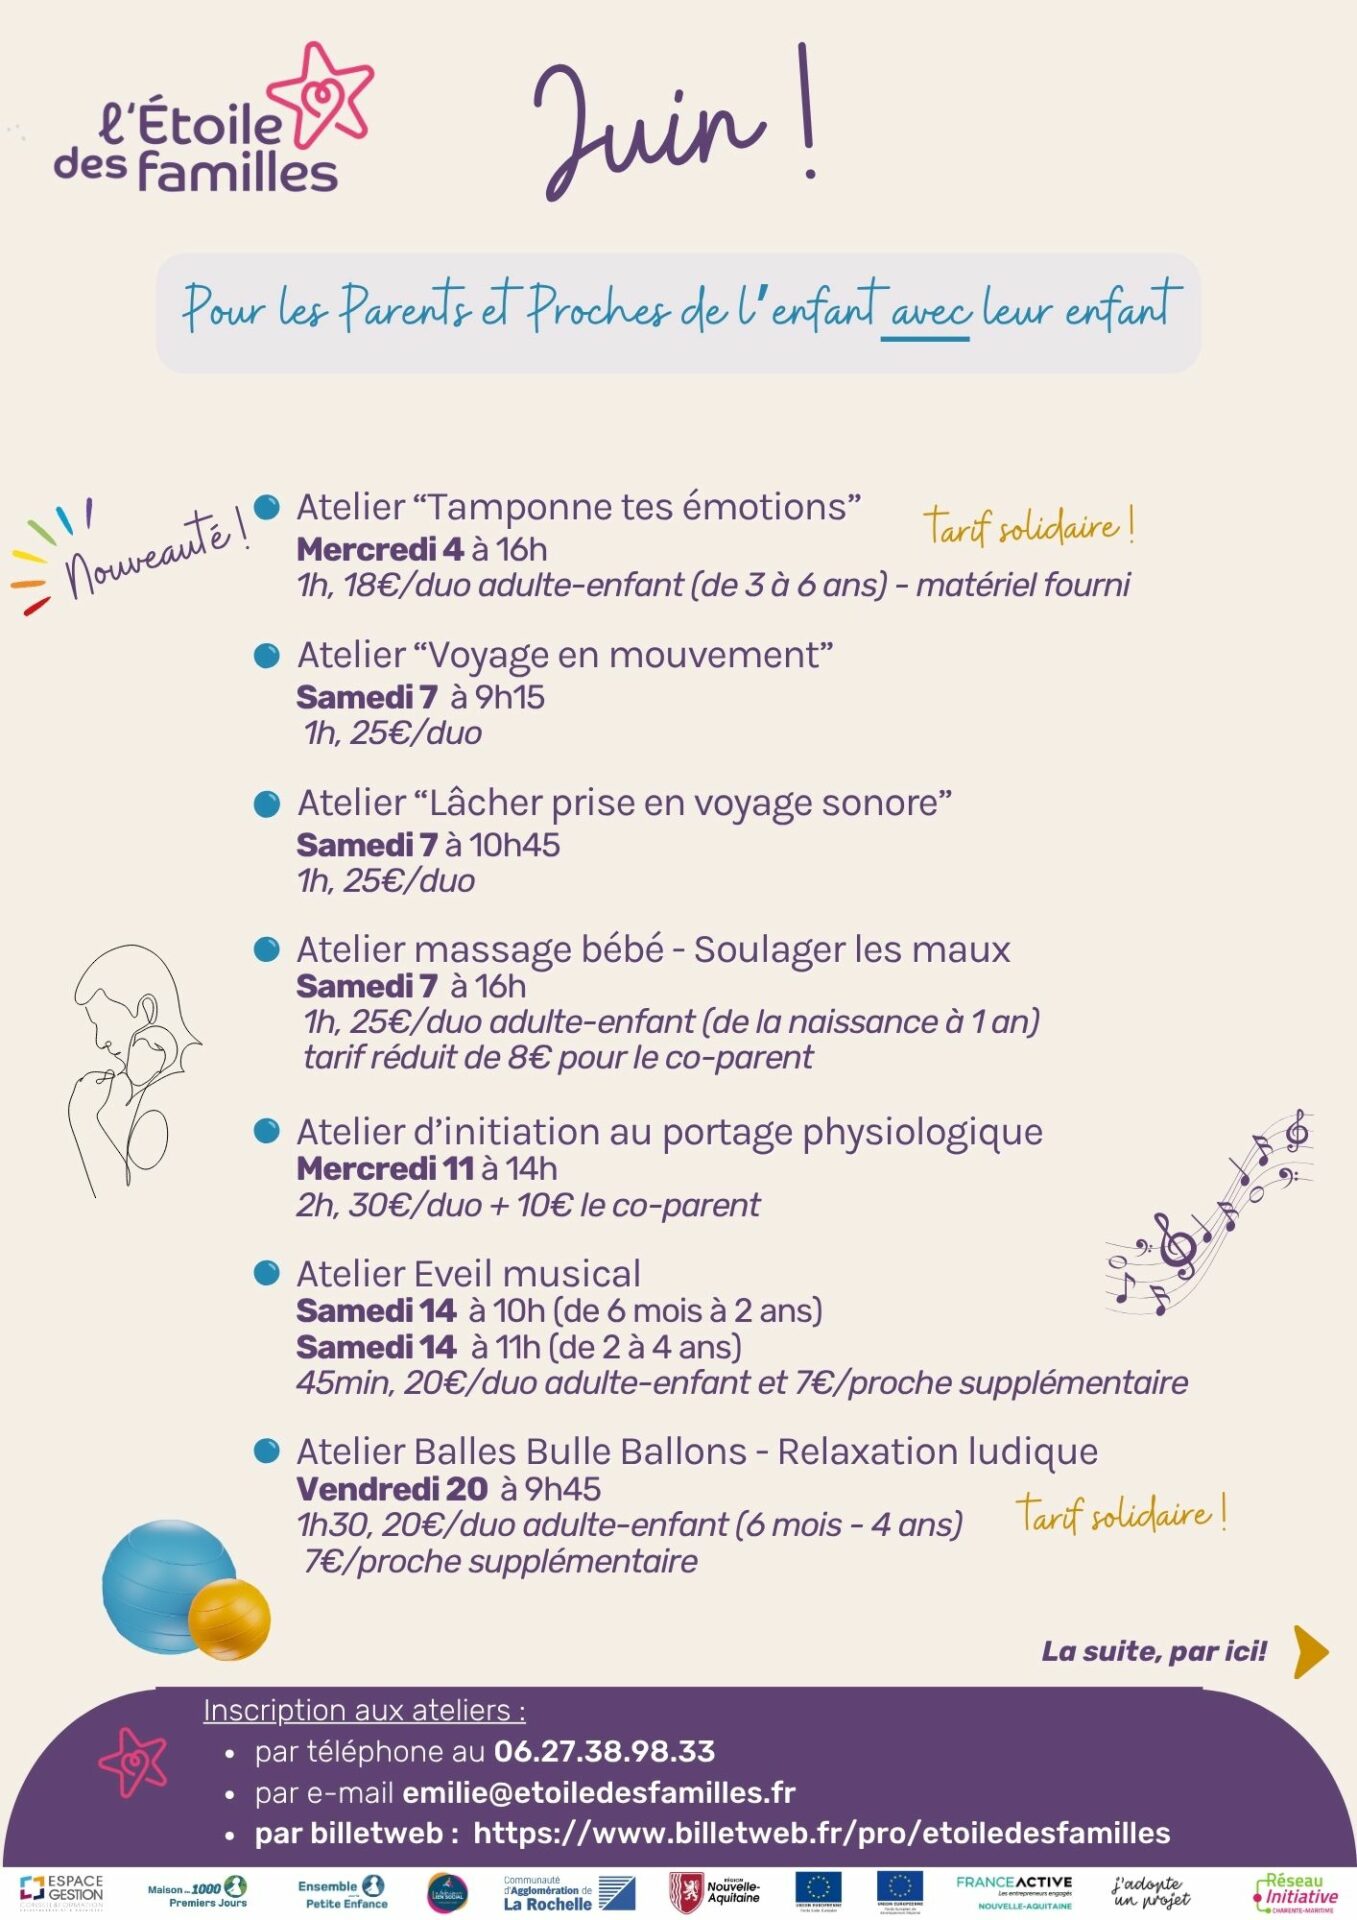 l'Étoile
des familles
Juin !
Pour les Parents et Proches de l'enfant avec leur enfant
Nouveauté !
Atelier “Tamponne tes émotions”
Tarif solidaire !
Mercredi 4 à 16h
1h, 18€/duo adulte-enfant (de 3 à 6 ans) - matériel fourni
Atelier “Voyage en mouvement”
Samedi 7 à 9h15
1h, 25€/duo
Atelier “Lâcher prise en voyage sonore”
Samedi 7 à 10h45
1h, 25€/duo
Atelier massage bébé - Soulager les maux
Samedi 7 à 16h
1h, 25€/duo adulte-enfant (de la naissance à 1 an)
tarif réduit de 8€ pour le co-parent
Atelier d’initiation au portage physiologique
Mercredi 11 à 14h
2h, 30€/duo + 10€ le co-parent
Atelier Eveil musical
Samedi 14 à 10h (de 6 mois à 2 ans)
Samedi 14 à 11h (de 2 à 4 ans)
45min, 20€/duo adulte-enfant et 7€/proche supplémentaire
Atelier Balles Bulle Ballons - Relaxation ludique
Vendredi 20 à 9h45
1h30, 20€/duo adulte-enfant (6 mois - 4 ans)
Tarif solidaire !
7€/proche supplémentaire
La suite, par ici!
Inscription aux ateliers :
• par téléphone au 06.27.38.98.33
• par e-mail emilie@etoiledesfamilles.fr
• par billetweb : https://www.billetweb.fr/pro/etoiledesfamilles
ESPACE
GESTION
Maison des 1000
Premiers Jours
Ensemble
Petite Enfance
LIEN SOCIAL
Communauté
d'Agglomération de
La Rochelle
RÉGION
Nouvelle-
Aquitaine
UNION EUROPÉENNE
UNION EUROPÉENNE
FRANCE ACTIVE
Les entrepreneurs engagés
NOUVELLE-AQUITAINE
j'adopte
un projet
Réseau
Initiative
CHARENTE-MARITIME